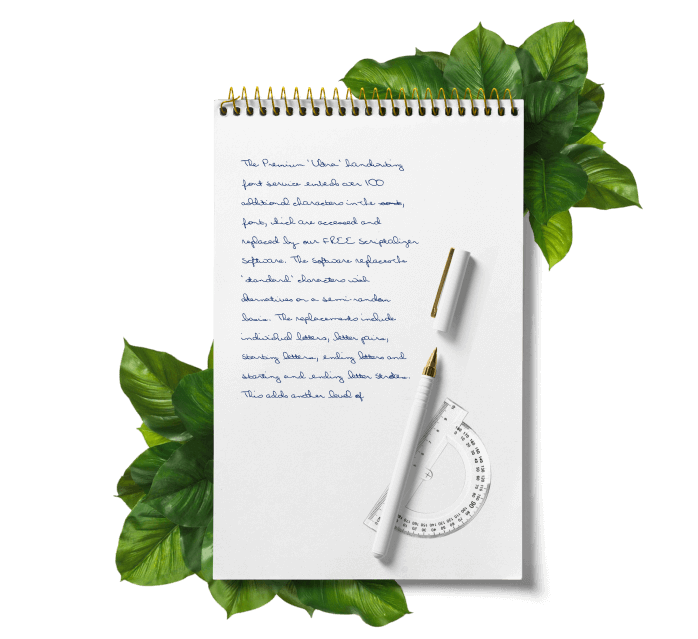 The Premium 'Ultra' handwriting
font service embeds over 100
additional characters in the
font, which are accessed and
replaced by our FREE Scriptalizer
software. The software replaces the
'standard' characters with
alternatives on a semi-random
basis. The replacements include
individual letters, letter pairs,
starting letters, ending letters and
starting and ending letter strokes.
This adds another level of